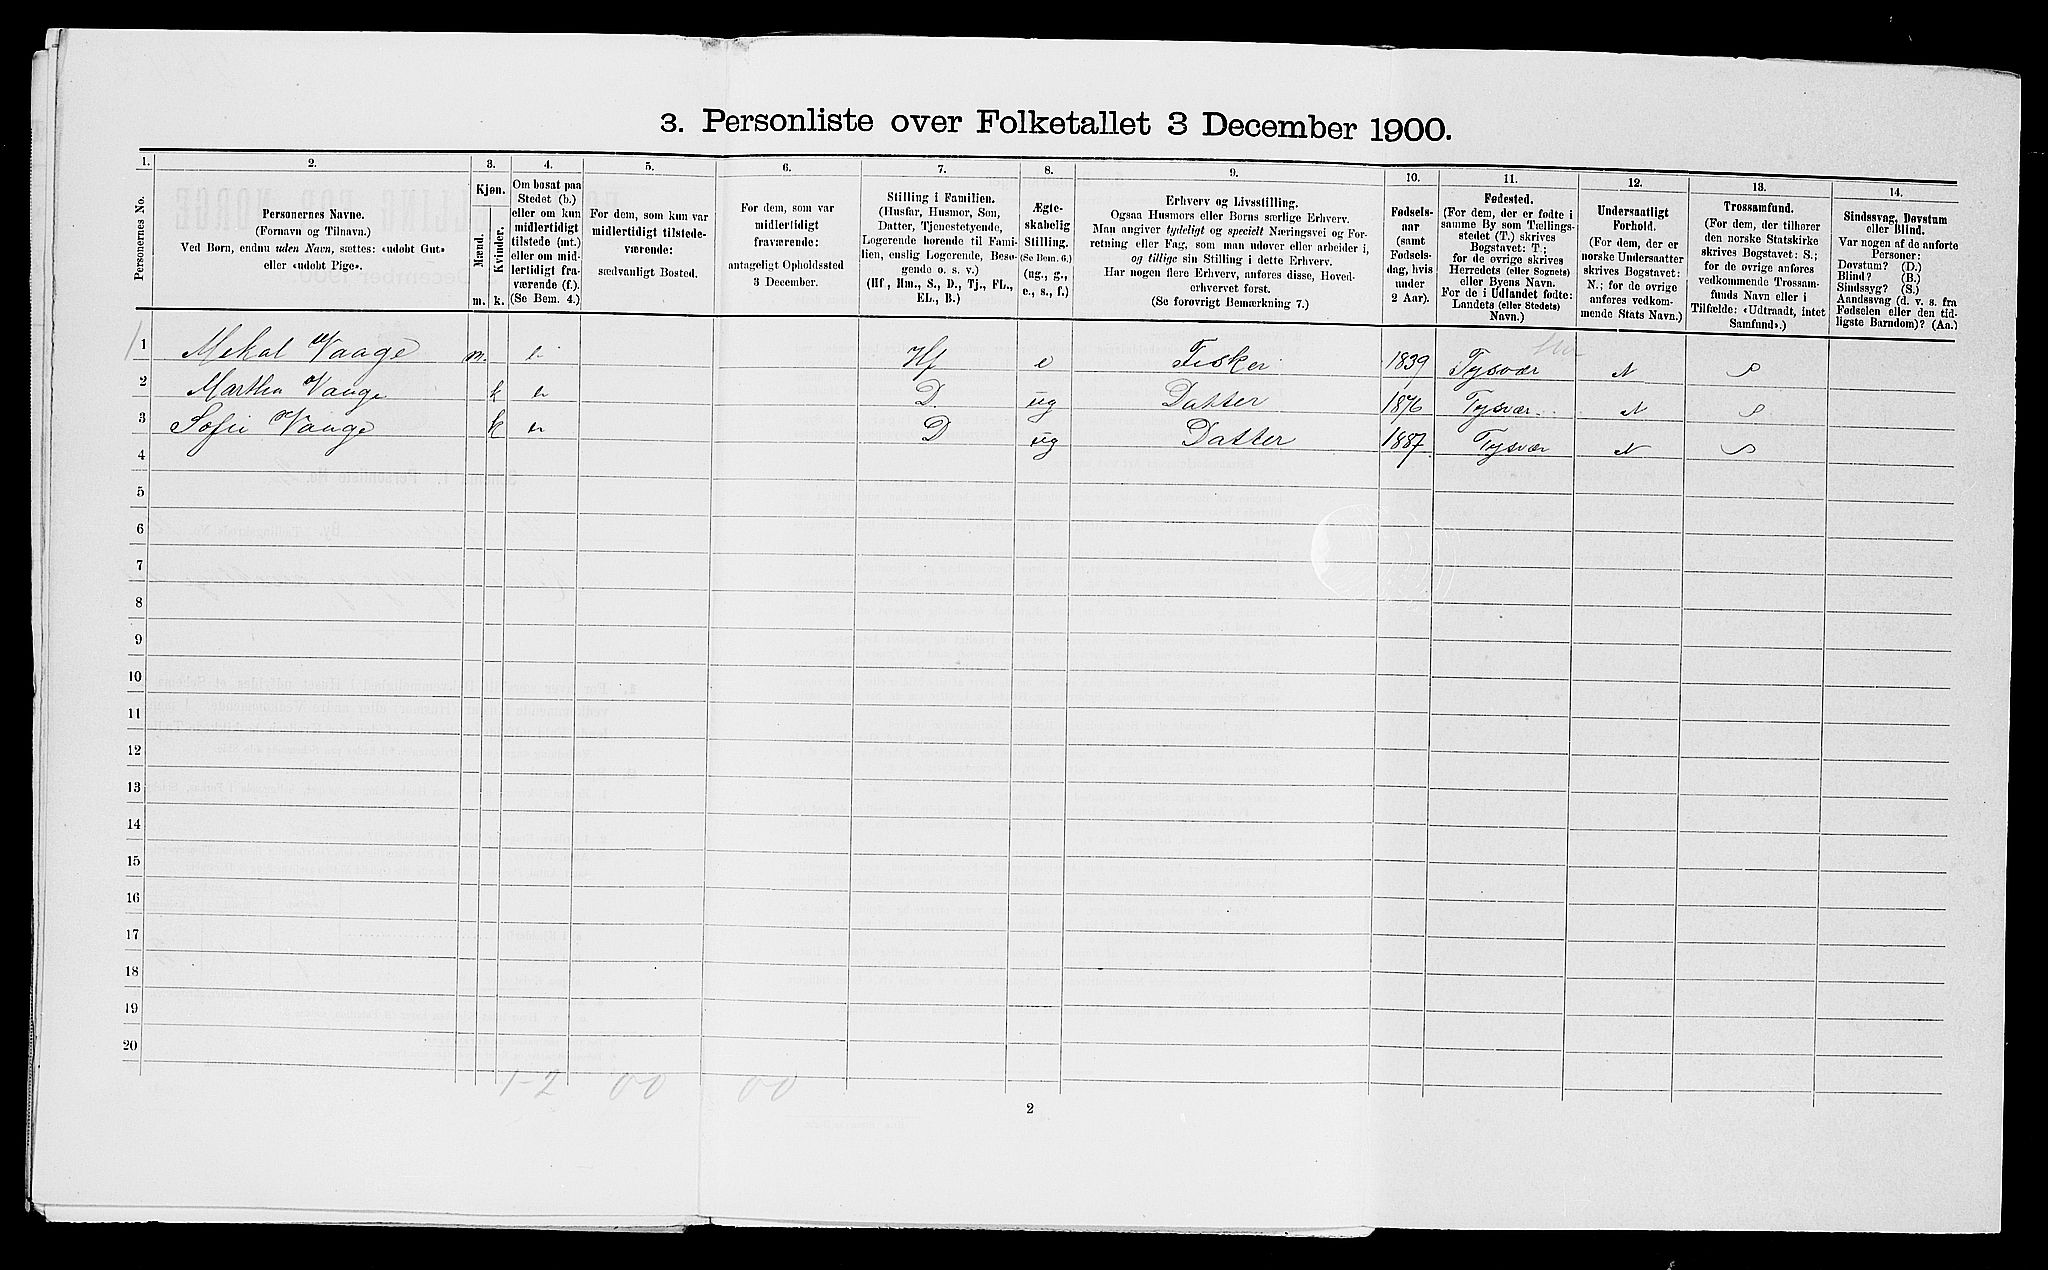 3. Personliste over Folketallet 3 December 1900.
1. 2. 3. 4. 5. 6. 7. 8. 9. 10. 11. 12. 13. 14.
Personernes No.
Personernes Navne.
(Fornavn og Tilnavn.)
Ved Børn, endnu uden Navn, sættes: «udøbt Gut»
eller «udøbt Pige».
Kjøn.
Mænd.
Kvinder.
m. k.
Om bosat paa
Stedet (b.)
eller om kun
midlertidigt
tilstede (mt.)
eller om mid-
lertidigt fra-
værende (f.).
(Se Bem. 4.)
For dem, som kun var
midlertidigt tilstede-
værende:
sædvanligt Bosted.
For dem, som var
midlertidigt
fraværende:
antageligt Opholdssted
3 December.
Stilling i Familien.
(Husfar, Husmor, Søn,
Datter, Tjenestetyende,
Logerende hørende til Fami-
lien, enslig Logerende, Besø-
gende o. s. v.)
(Hf., Hm., S., D., Tj., FL.,
EL., B.)
Ægte-
skabelig
Stilling.
(Se Bem. 6.)
(ug., g.,
e., s., f.)
Erhverv og Livsstilling.
Ogsaa Husmors eller Børns særlige Erhverv.
Man angiver tydeligt og specielt Næringsvei og For-
retning eller Fag, som man udøver eller arbeider i,
og tillige sin Stilling i dette Erhverv.
Har nogen flere Erhverv, anføres disse, Hoved-
erhvervet først.
(Se forøvrigt Bemærkning 7.)
Fødsels-
aar
(samt
Fødsels-
dag, hvis
under
2 Aar).
Fødested.
(For dem, der er fødte i
samme By som Tællings-
stedet (T.) skrives
Bogstavet: T.;
for de øvrige skrives
Herredets (eller Sognets)
eller Byens Navn.
For de i Udlandet fødte:
Landets (eller Stedets)
Navn.)
Undersaatligt
Forhold.
(For dem, der er
norske Undersaatter
skrives Bogstavet:
N.; for de øvrige
anføres vedkom-
mende Stats Navn.)
Trossamfund.
(For dem, der tilhører
den norske Statskirke
skrives Bogstavet: S.;
for de øvrige anføres
vedkommende Trossam-
funds Navn eller i
Tilfælde: «Udtraadt, intet
Samfund».)
Sindssvag, Døvstum
eller Blind.
Var nogen af de anførte
Personer:
Døvstum? (D.)
Blind? (B.)
Sindssyg? (S.)
Aandssvag (d. v. s. fra
Fødselen eller den tid-
ligste Barndom)? (Aa.)
1 Mekal Vaage m. Hf e Fisker 1839 Tysvær N S
2 Martha Vaage k D. ug Datter 1876 Tysvær. N S
3 Sofie Vaage k D ug Datter 1887 Tysvær N S
4
5
6
7
8
9
10
11
12
13
14
15
16
17
18
19
20
1-2 00 00
2